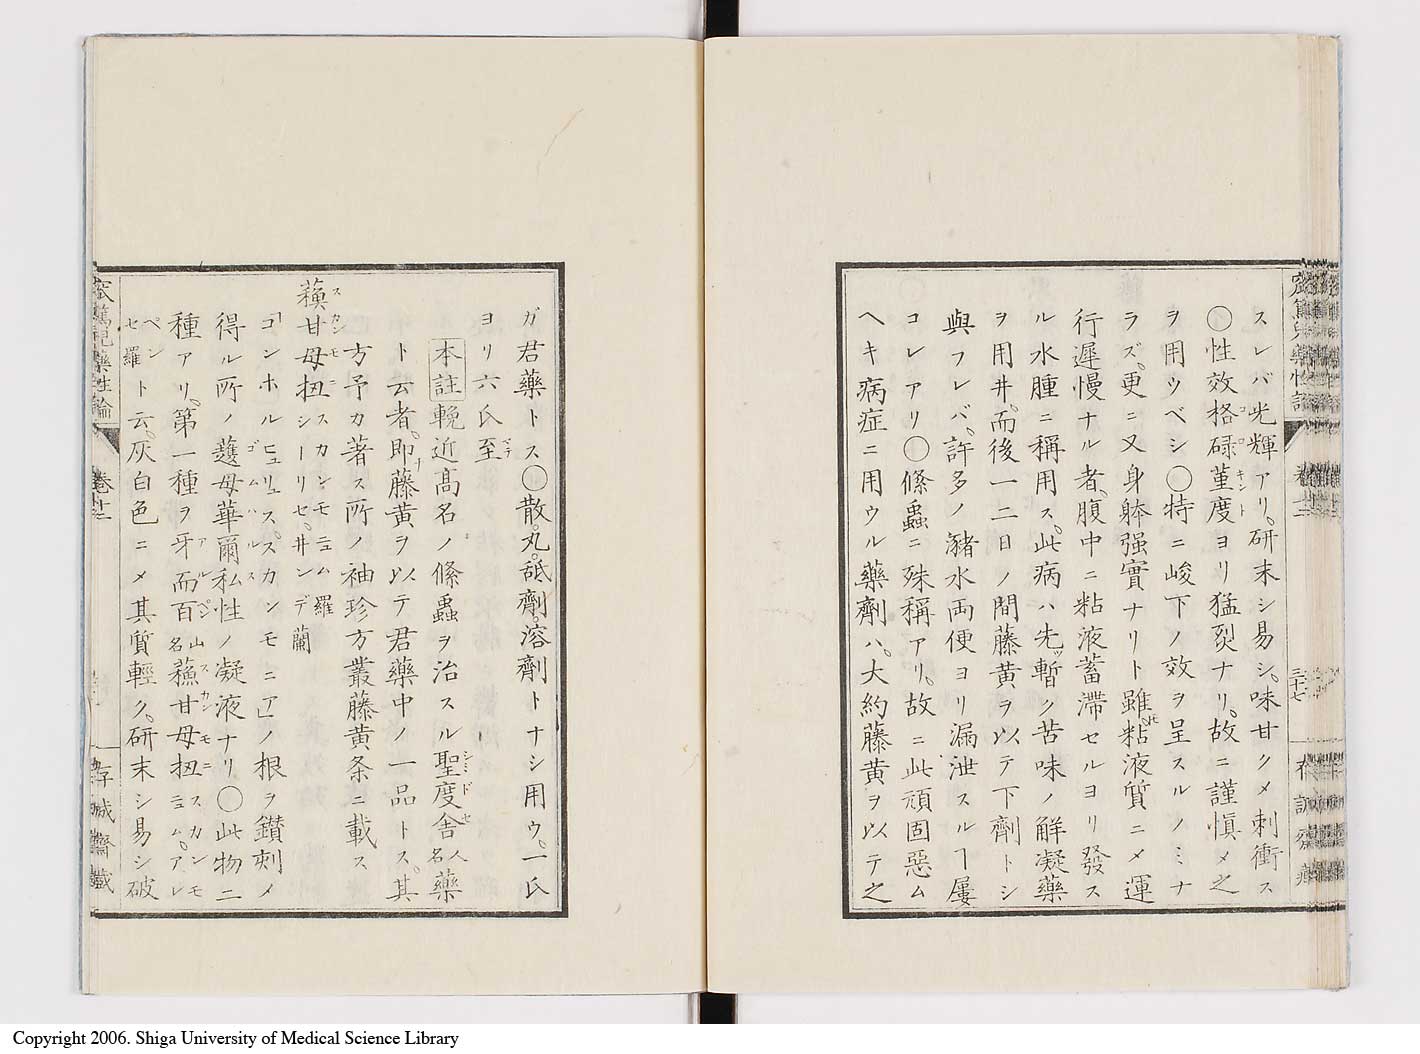 スレバ光輝アリ。研末シ易シ。味甘クメ刺衝ス
〇性效格碌菫度ヨリ猛裂ナリ。故ニ謹慎メ之
ヲ用ウベシ〇特ニ峻下ノ效ヲ呈スルノミナ
ラズ。更ニ又身體强實ナリト雖𪜈粘液質ニメ運
行遲慢ナル者。腹中ニ粘液蓄滯セルヨリ發ス
ル水腫ニ稱用ス。此病ハ先ッ暫ク苦味ノ解凝藥
ヲ用井。而後一二日ノ間藤黄ヲ以テ下劑トシ
與フレバ。許多ノ瀦水両便ヨリ漏泄スルヿ屢
コレアリ〇條蟲ニ殊稱アリ。故ニ此頑固惡ム
ヘキ病症ニ用ウル藥劑ハ。大約藤黄ヲ以テ之
三十七
ガ君藥トス〇散。丸。舐劑。溶劑トナシ用ウ。一氏
ヨリ六氏至
本註 輓近髙名ノ條蟲ヲ治スル聖度舎人名藥
ト云者。即ナ藤黄ヲ以テ君藥中ノ一品トス。其
方予カ著ス所ノ袖珍方叢藤黄条ニ載ス
蘓甘母扭 スカンモニュム羅 シーリセ。井ンデ蘭
「コンホルヒュリュス。スカンモニア」ノ根ヲ鑚刺メ
得ル所ノ護母華爾私性ノ凝液ナリ〇此物二
種アリ。第一種ヲ牙而百山名蘓甘母扭スカンモニュム。アレ
ペンセ羅ト云。灰白色ニメ其質輕ク。研末シ易シ破
卷十二
存誠齋藏